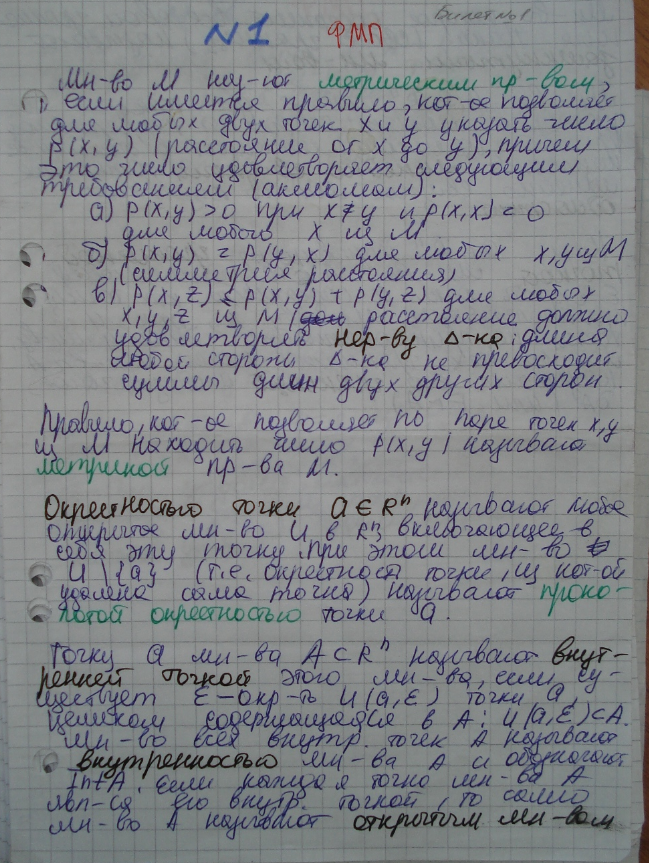 Билет №1
№1 ФМП
Мн-во М наз-ют метрическим пр-вом,
если имеется правило, кот-ое позволяет
для любых двух точек x и y указать число
ρ(x,y) (расстояние от x до y), причем
это число удовлетворяет следующим
требованиям (аксиомам):
а) ρ(x,y)>0 при x≠y и ρ(x,x)=0
для любого x из М
б) ρ(x,y) = ρ(y,x) для любых x,y из М
(симметрия расстояния)
в) ρ(x,z) ≤ ρ(x,y) + ρ(y,z) для любых
x,y,z из М (расстояние должно
удовлетворять нер-ву Δ-ка: длина
любой стороны Δ-ка не превосходит
суммы длин двух других сторон.
Правило, кот-ое позволяет по паре точек x,y
из М находить число ρ(x,y) называют
метрикой пр-ва М.
Окрестностью точки a∈Rⁿ называют любое
открытое мн-во U в Rⁿ, включающее в
себя эту точку, при этом мн-во
U\{a} (т.е. окрестность точки, из кот-ой
удалена сама точка) называют проко-
лотой окрестностью точки a.
Точку a мн-ва A⊂Rⁿ называют внут-
ренней точкой этого мн-ва, если су-
ществует ε-окр-ть U(a,ε) точки a,
целиком содержащаяся в A: U(a,ε)⊂A.
Мн-во всех внутр. точек A называют
внутренностью мн-ва A и обозначают
Int A. Если каждая точка мн-ва A
явл-ся его внутр. точкой, то само
мн-во A называют открытым мн-вом